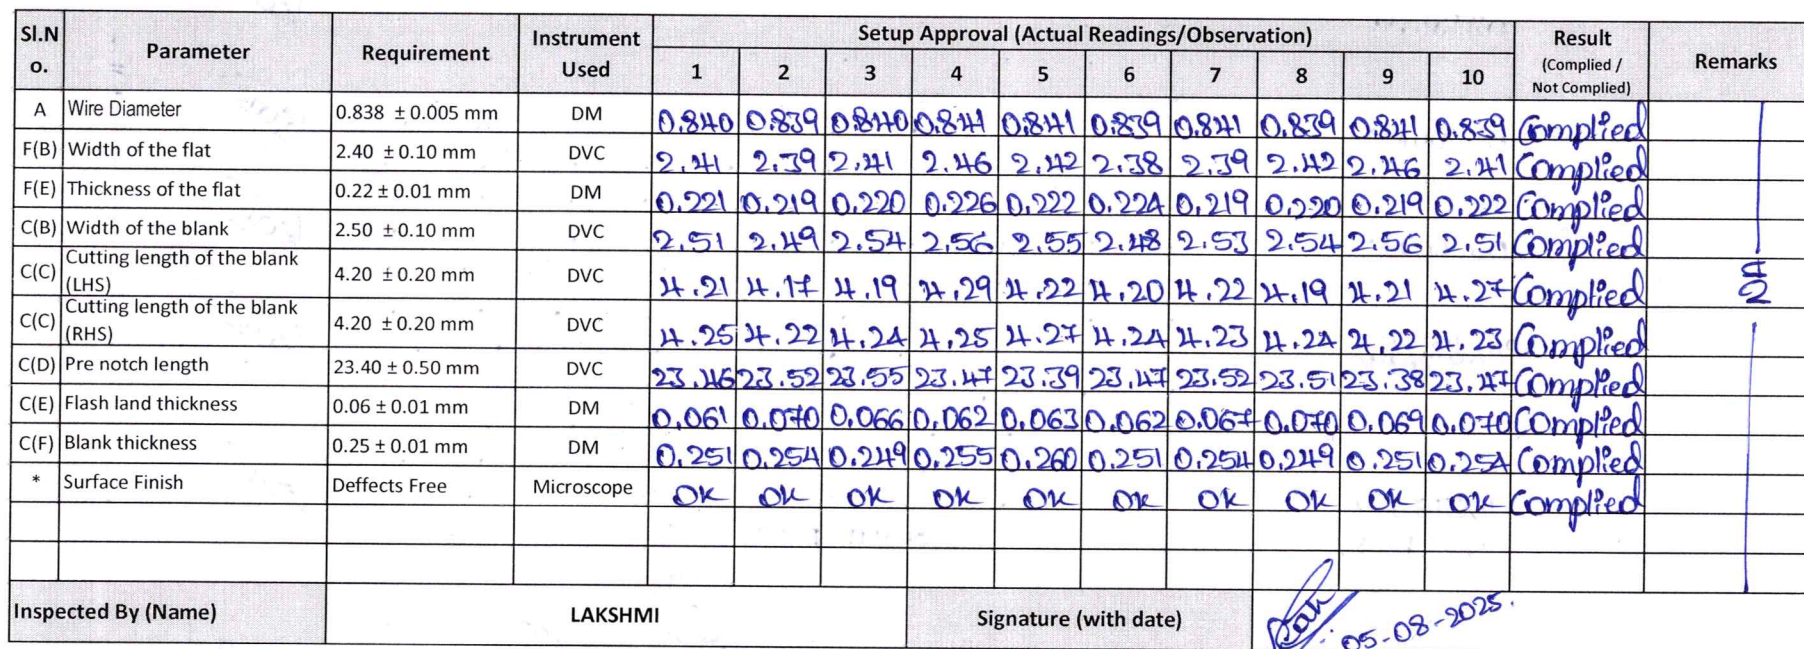 Sl.No. Parameter Requirement Instrument Used Setup Approval (Actual Readings/Observation) Result (Complied / Not Complied) Remarks
1 2 3 4 5 6 7 8 9 10
A Wire Diameter 0.838 ± 0.005 mm DM 0.840 0.839 0.840 0.841 0.841 0.839 0.841 0.839 0.841 0.839 Complied
F(B) Width of the flat 2.40 ± 0.10 mm DVC 2.41 2.39 2.41 2.46 2.42 2.38 2.39 2.42 2.46 2.41 Complied
F(E) Thickness of the flat 0.22 ± 0.01 mm DM 0.221 0.219 0.220 0.226 0.222 0.224 0.219 0.220 0.219 0.222 Complied
C(B) Width of the blank 2.50 ± 0.10 mm DVC 2.51 2.49 2.54 2.56 2.55 2.48 2.53 2.54 2.56 2.51 Complied
C(C) Cutting length of the blank (LHS) 4.20 ± 0.20 mm DVC 4.21 4.17 4.19 4.29 4.22 4.20 4.22 4.19 4.21 4.27 Complied
C(C) Cutting length of the blank (RHS) 4.20 ± 0.20 mm DVC 4.25 4.22 4.24 4.25 4.27 4.24 4.23 4.24 4.22 4.23 Complied
C(D) Pre notch length 23.40 ± 0.50 mm DVC 23.46 23.52 23.55 23.47 23.39 23.47 23.52 23.51 23.38 23.47 Complied
C(E) Flash land thickness 0.06 ± 0.01 mm DM 0.061 0.070 0.066 0.062 0.063 0.062 0.067 0.070 0.069 0.070 Complied
C(F) Blank thickness 0.25 ± 0.01 mm DM 0.251 0.254 0.249 0.255 0.260 0.251 0.254 0.249 0.251 0.254 Complied
* Surface Finish Deffects Free Microscope OK OK OK OK OK OK OK OK OK OK Complied
Inspected By (Name) LAKSHMI Signature (with date) 05-08-2025.